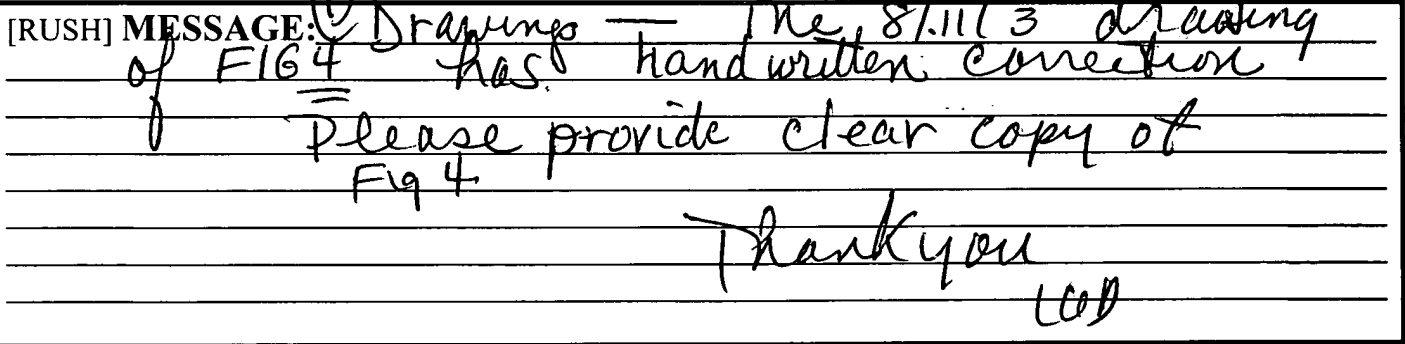 [RUSH] MESSAGE: ① Drawings — The 8/11/3 drawing
of FIG 4 has handwritten correction
Please provide clear copy of
Fig 4
Thank you